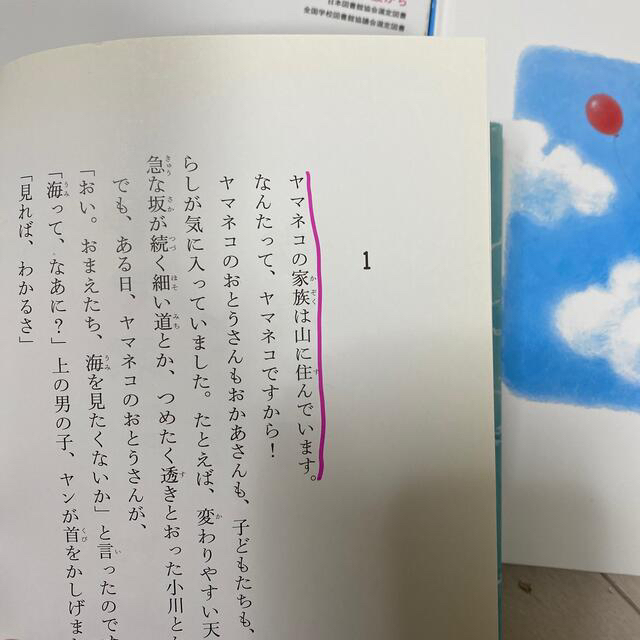 から
日本図書館協会選定図書
全国学校図書館協議会選定図書
1
ヤマネコの家族は山に住んでいます。
なんたって、ヤマネコですから！
ヤマネコのおとうさんもおかあさんも、子どもたちも、
らしが気に入っていました。たとえば、変わりやすい天
急な坂が続く細い道とか、つめたく透きとおった小川と
でも、ある日、ヤマネコのおとうさんが、
「おい。おまえたち、海を見たくないか」と言ったのです
「海って、なあに？」上の男の子、ヤンが首をかしげま
「見れば、わかるさ」